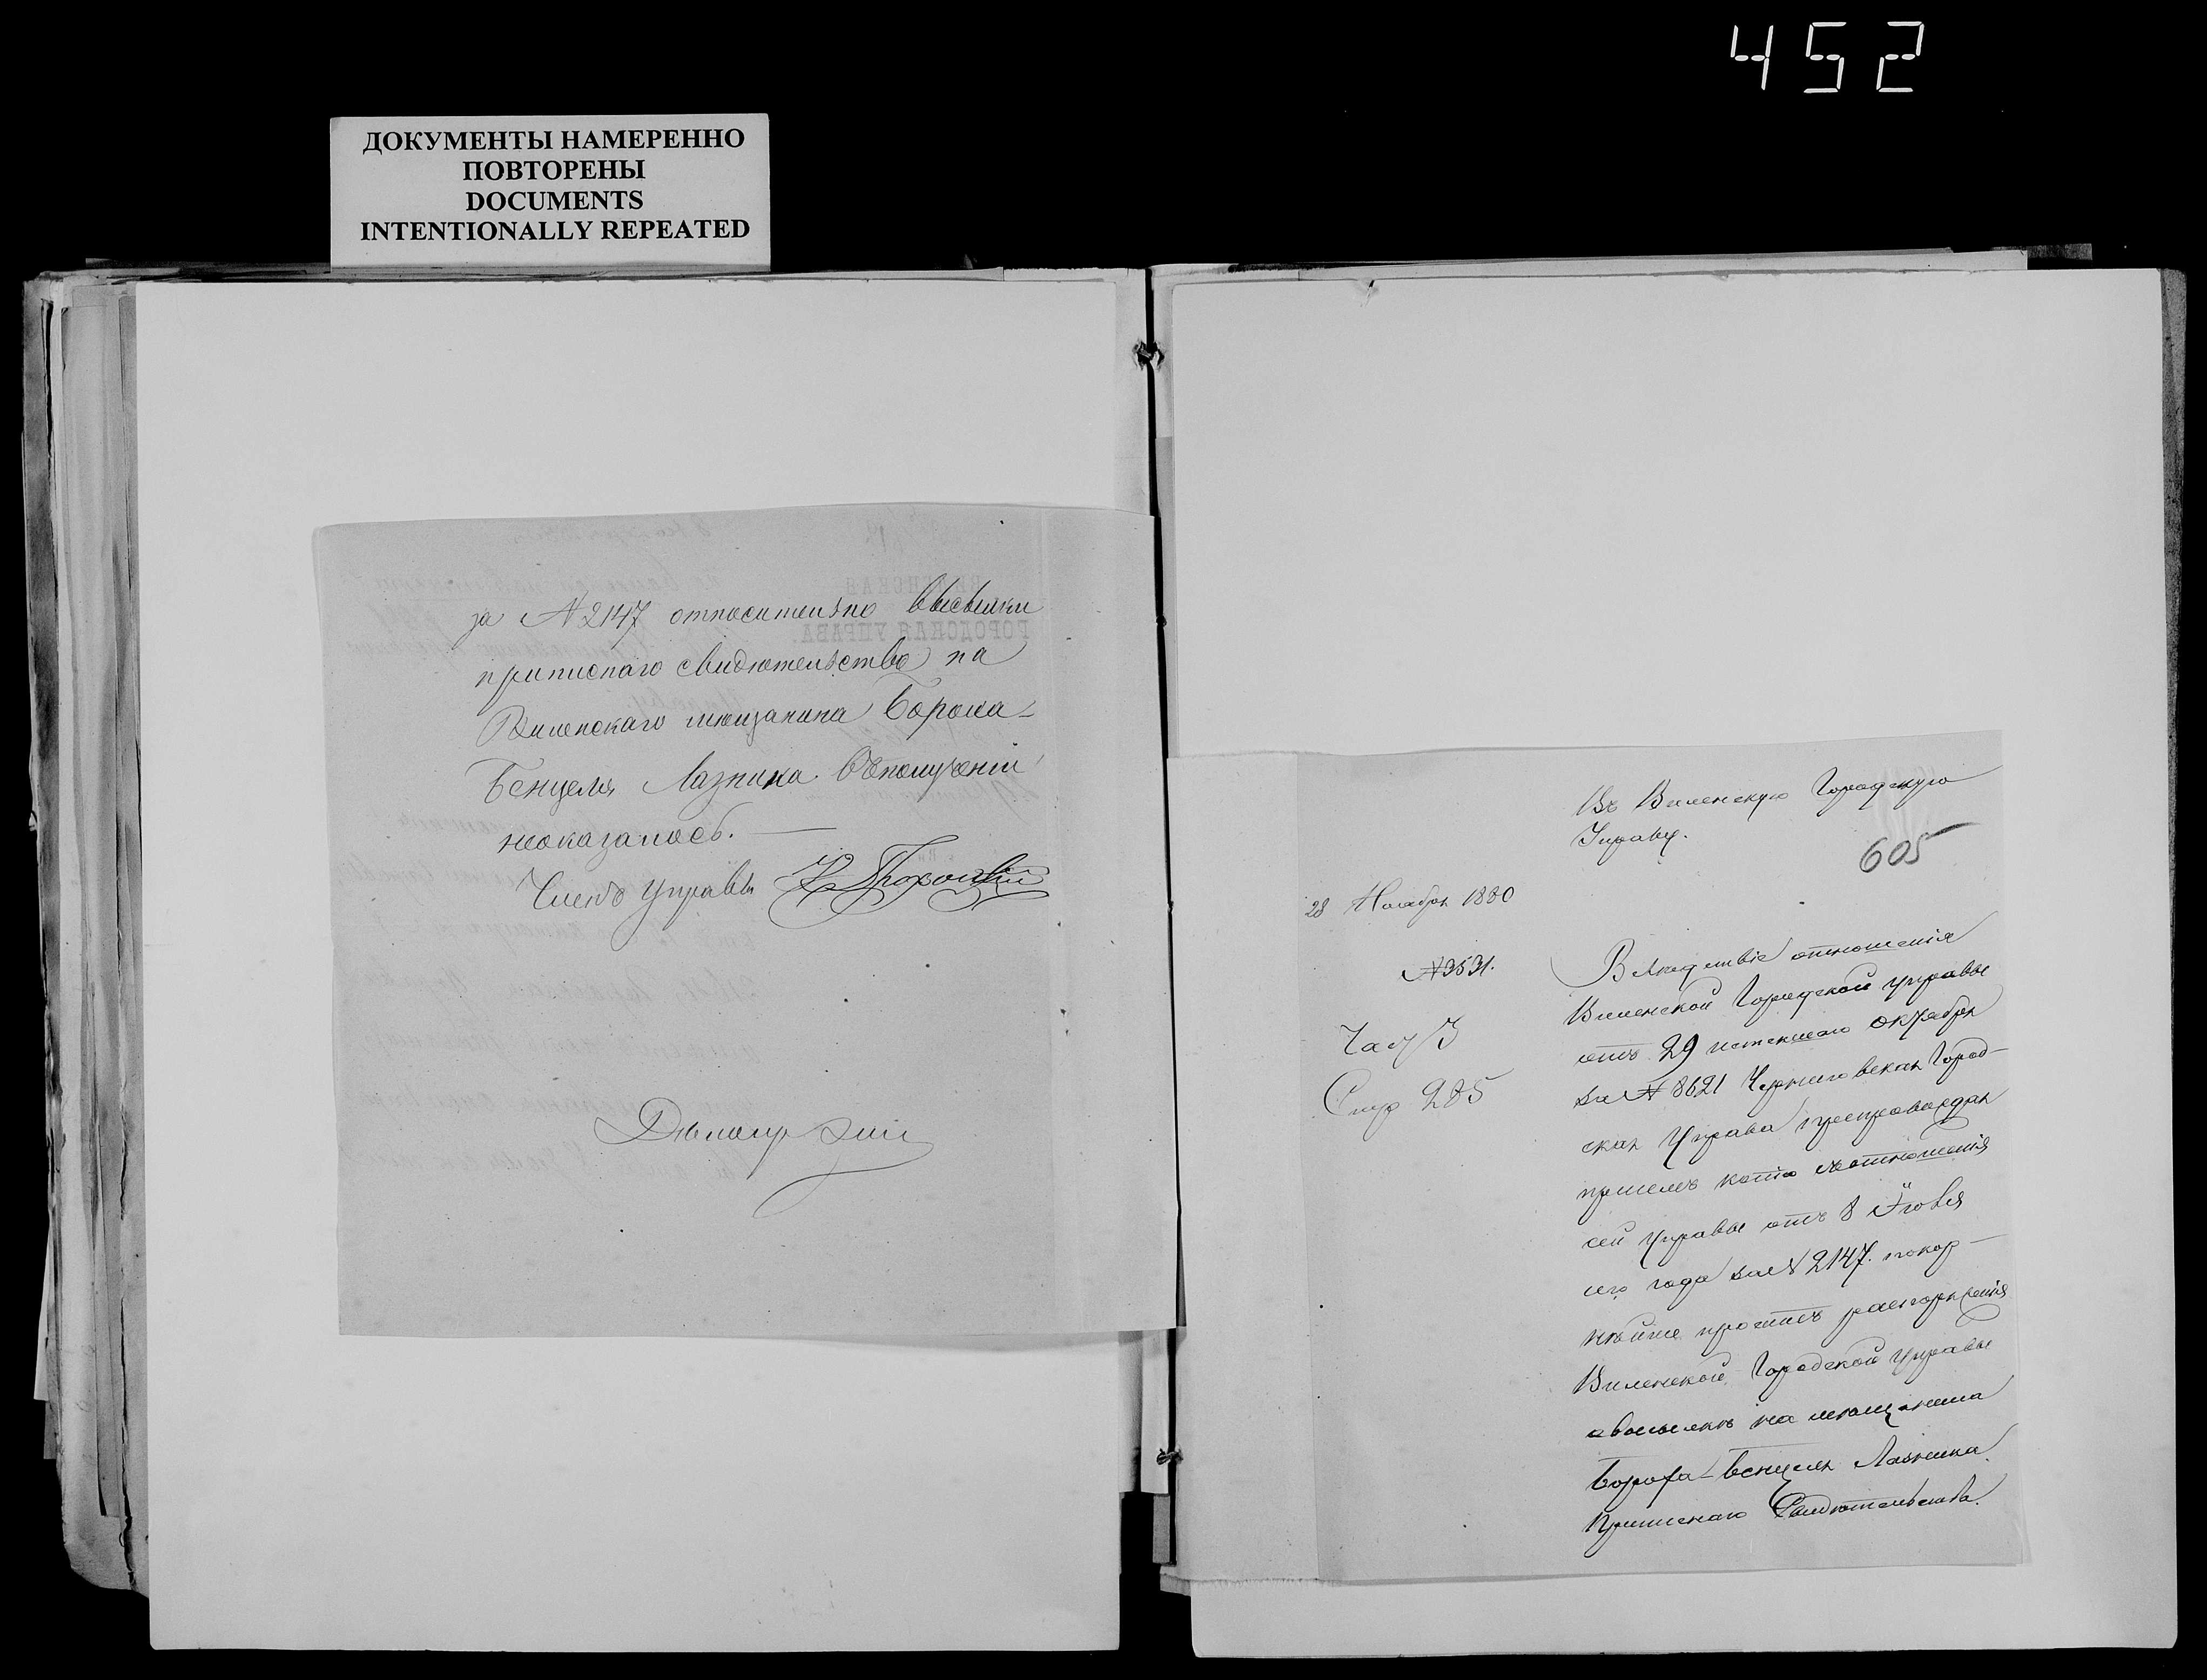 452
ДОКУМЕНТЫ НАМЕРЕННО
ПОВТОРЕНЫ
DOCUMENTS
INTENTIONALLY REPEATED
за № 2147 относительно высылки
приписнаго свидѣтельства на
Виленскаго мѣщанина Бороха-
Бенцеля Лазника въ полученіи
неоказалось. —
Членъ Управы
ГОРОДСКАЯ УПРАВА.
Въ Виленскую Городскую
Управу.
605
28 Ноября 1880
№ 3531.
Част 3
Стр 285
Вслѣдствіе отношенія
Виленской Городской управы
отъ 29 истекшаго октября
за № 8621 Черниговская Город-
ская Управа препровождая
присемъ копію съ отношенія
сей управы отъ 8 Іюля
сего года за № 2147. покор-
нѣйше проситъ распоряженія
Виленской Городской управы
о высылкѣ на мѣщанина
Бороха-Бенцеля Лазника
Приписнаго Свидѣтельства.